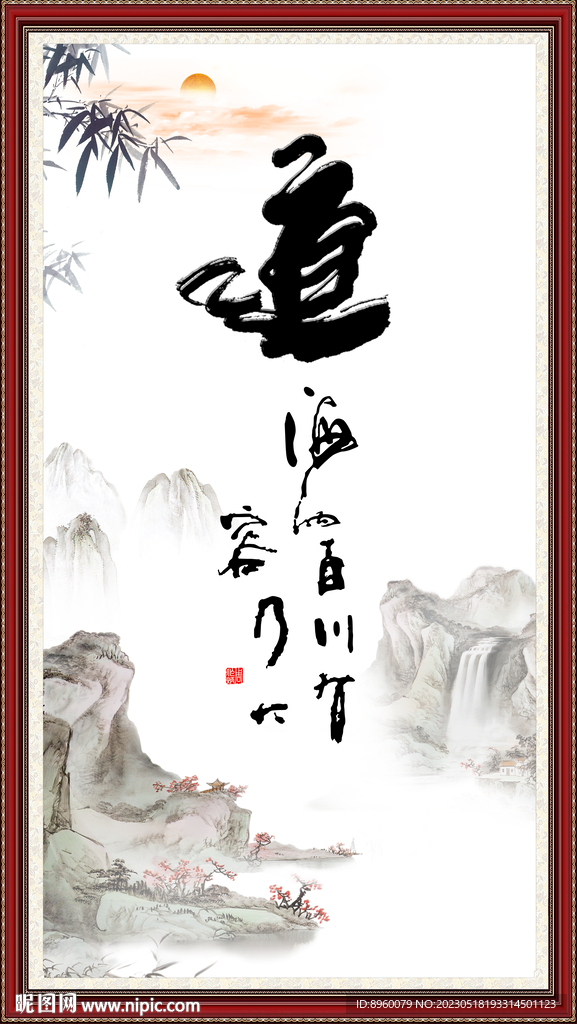 道
海纳百川有
容乃大
昵图网 www.nipic.com
ID:8960079 NO:20230518193314501123